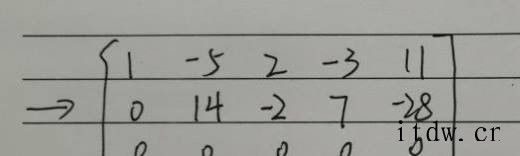 1 -5 2 -3 11
→ 0 14 -2 7 -28
0 0 0 0 0
itdw.cn